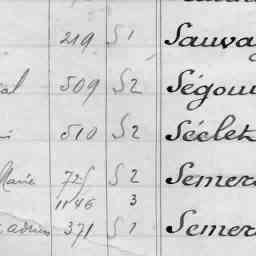 219 S 1 Sauva
al 509 S 2 Ségou
510 S 2 Séclet
Marie 725 S 2 Semer
1146 3
adrien 371 S 1 Semer